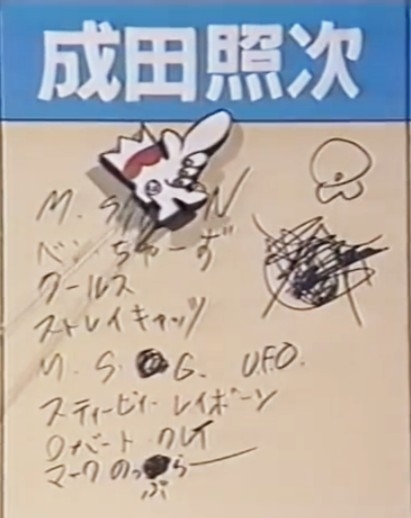 成田照次
クールス
ストレイキャッツ
M. S. G. U.F.O.
スティービィー レイボーン
ロバート クレイ
マークのっらー
ぶ